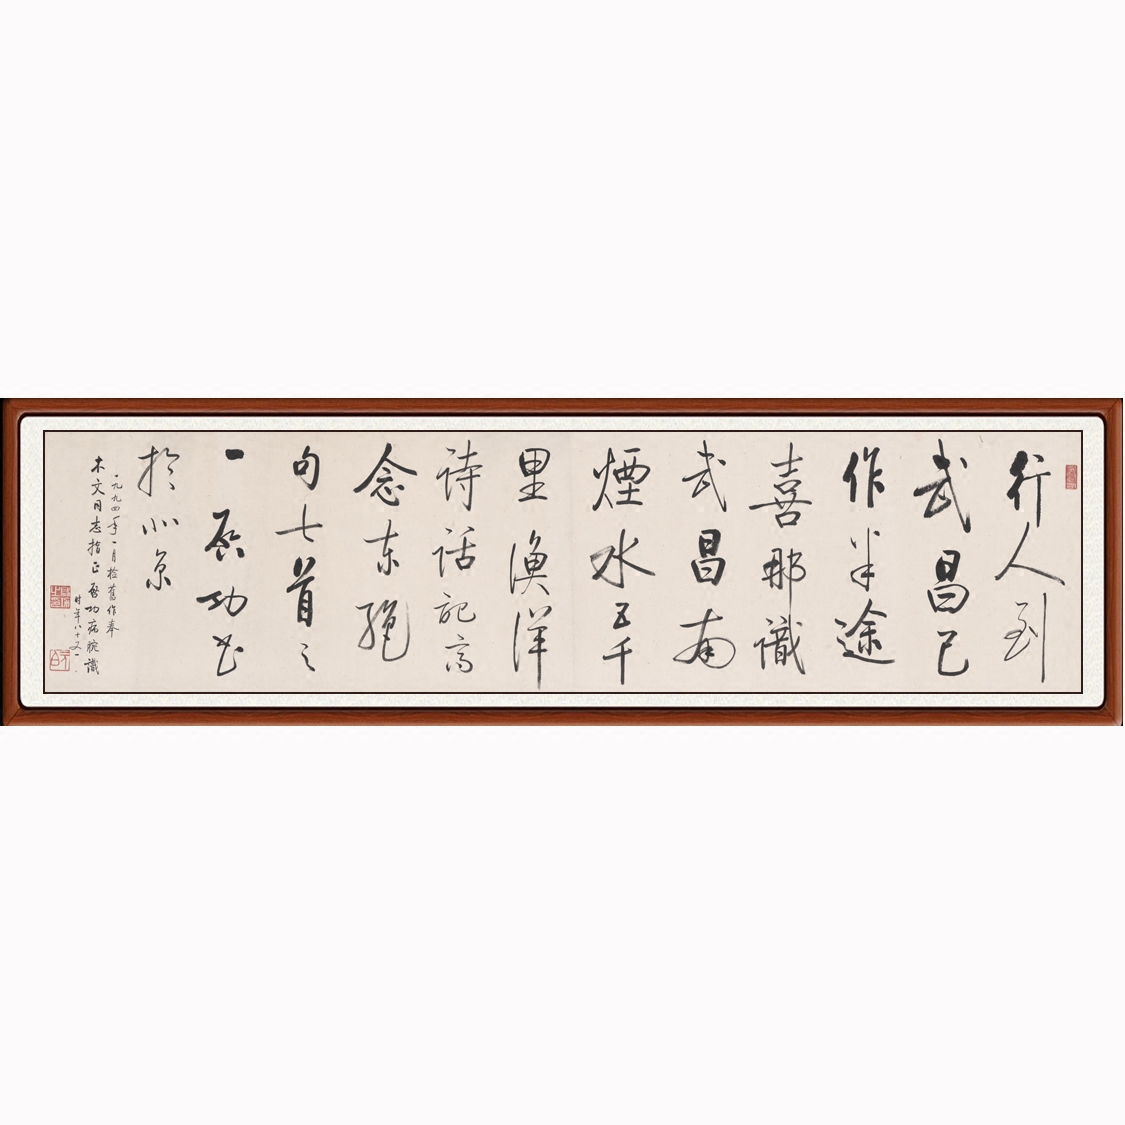 行人到
武昌已
作半途
喜那識
武昌南
煙水五千
里漁洋
詩話記高
念东绝
句七首之
一启功书
扵北京
一九九四年一月捡舊作奉
木文同志指正启功病腕識
时年八十又一